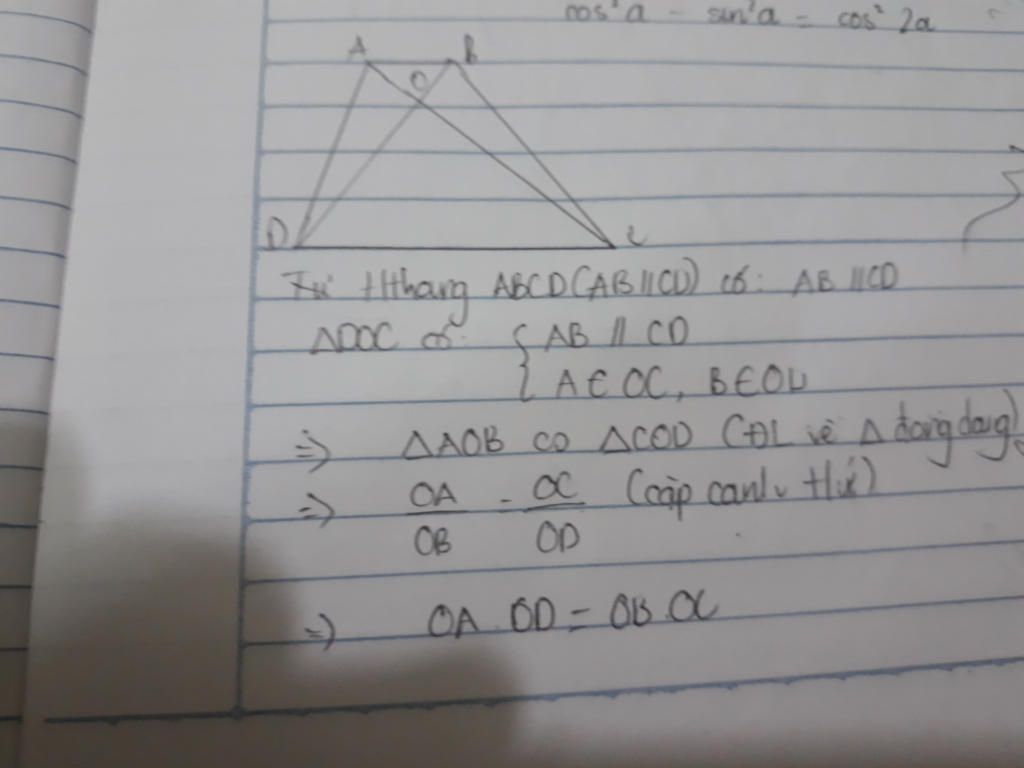 cos² a - sin² a = cos² 2a
A B
O
D C
Tứ Hthang ABCD (AB // CD) có: AB // CD
ΔDOC có: { AB // CD
A ∈ OC, B ∈ OD
=> ΔAOB ∽ ΔCOD (ĐL về Δ đồng dạng)
=> OA/OB = OC/OD (cặp cạnh t/ứ)
=> OA.OD = OB.OC